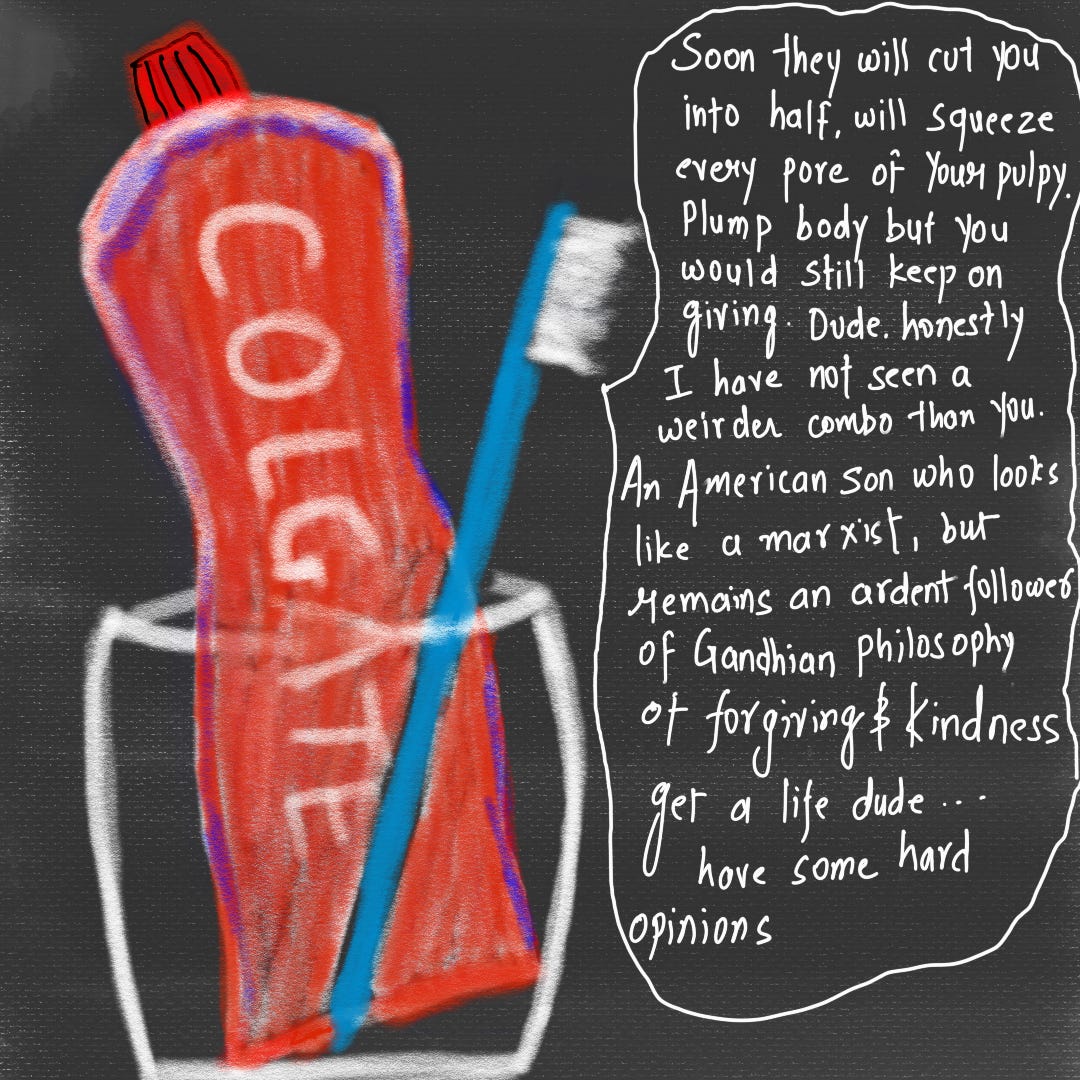 COLGATE
Soon they will cut you
into half, will squeeze
every pore of your pulpy.
Plump body but you
would still keep on
giving. Dude. honestly
I have not seen a
weirder combo than you.
An American son who looks
like a marxist, but
remains an ardent follower
of Gandhian philosophy
of forgiving & kindness
get a life dude...
have some hard
opinions